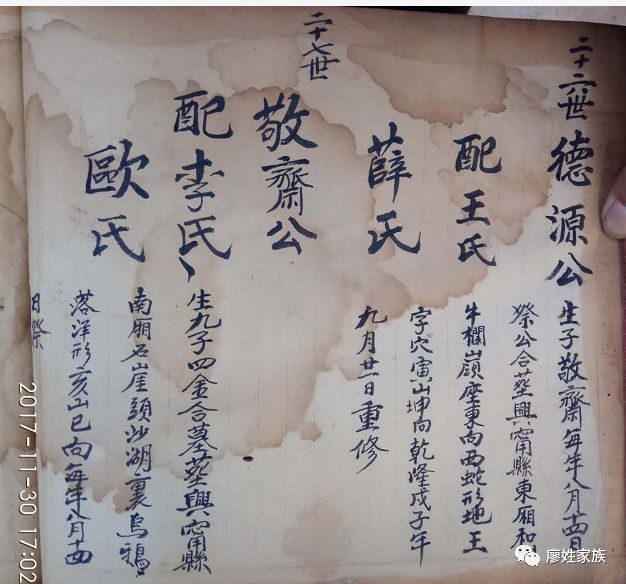 二十六世
德源公 生子敬齋每年八月十四日
祭公合葬興甯縣東厢和
配王氏 牛欄嶺座東向西蛇形地王
字穴寅山坤向乾隆戊子年
薛氏 九月廿一日重修
二十七世
敬齋公
配李氏 生九子四金合墓葬興甯縣
南厢石崖頭沙湖裏烏鴉
歐氏 落洋形亥山巳向每年八月十四
日祭
2017-11-30 17:02
廖姓家族